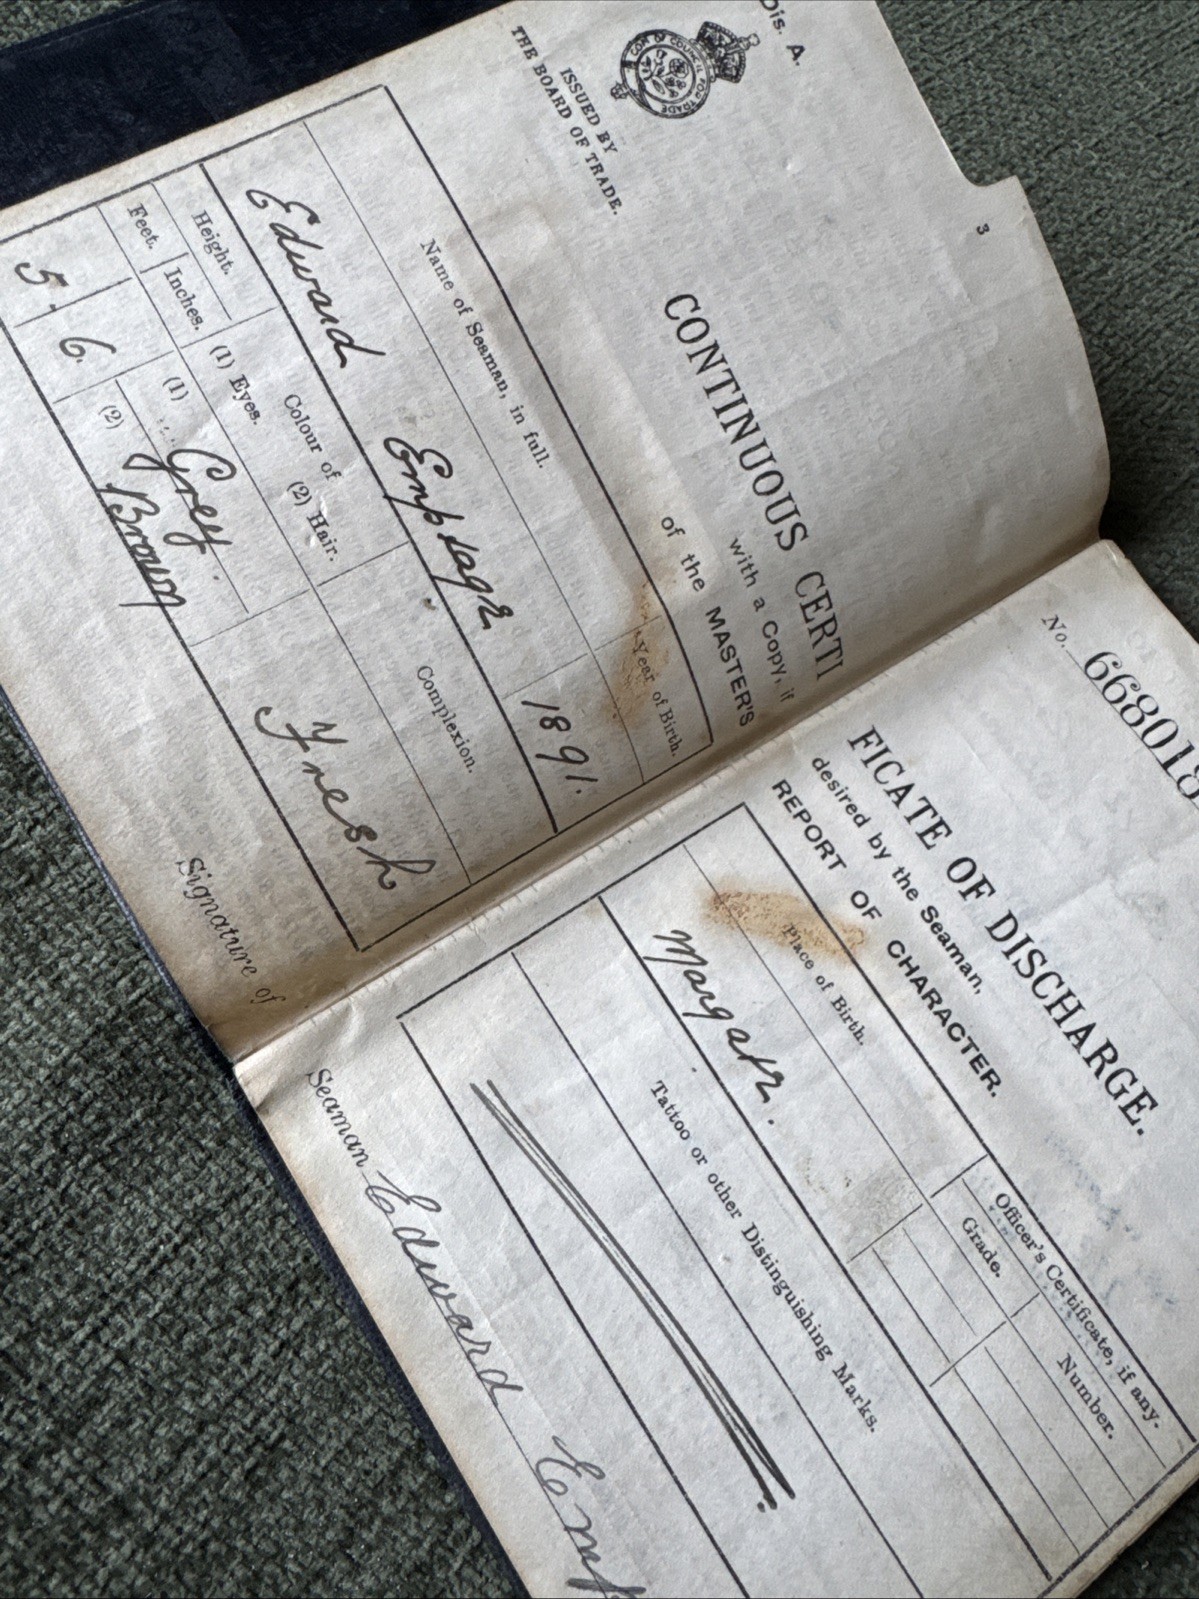 Dis. A.
COM OF COUNCIL FOR TRADE
ISSUED BY
THE BOARD OF TRADE.
3
No. 668018
CONTINUOUS CERTIFICATE OF DISCHARGE.
with a Copy, if desired by the Seaman,
of the MASTER'S REPORT OF CHARACTER.
Name of Seaman, in full. Year of Birth. Place of Birth. Officer's Certificate, if any.
Grade. Number.
Edward Emptage 1891. Margate.
Height. Colour of Complexion. Tattoo or other Distinguishing Marks.
Feet. Inches. (1) Eyes. (2) Hair.
5. 6. (1) Grey Fresh
(2) Brown
Signature of Seaman Edward Emp